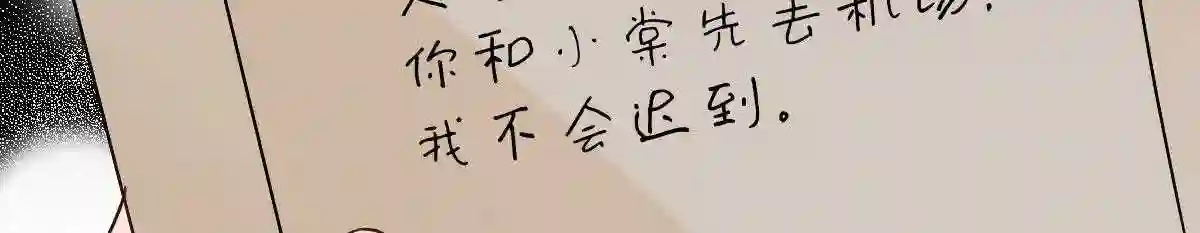 你和小棠先去机场，
我不会迟到。